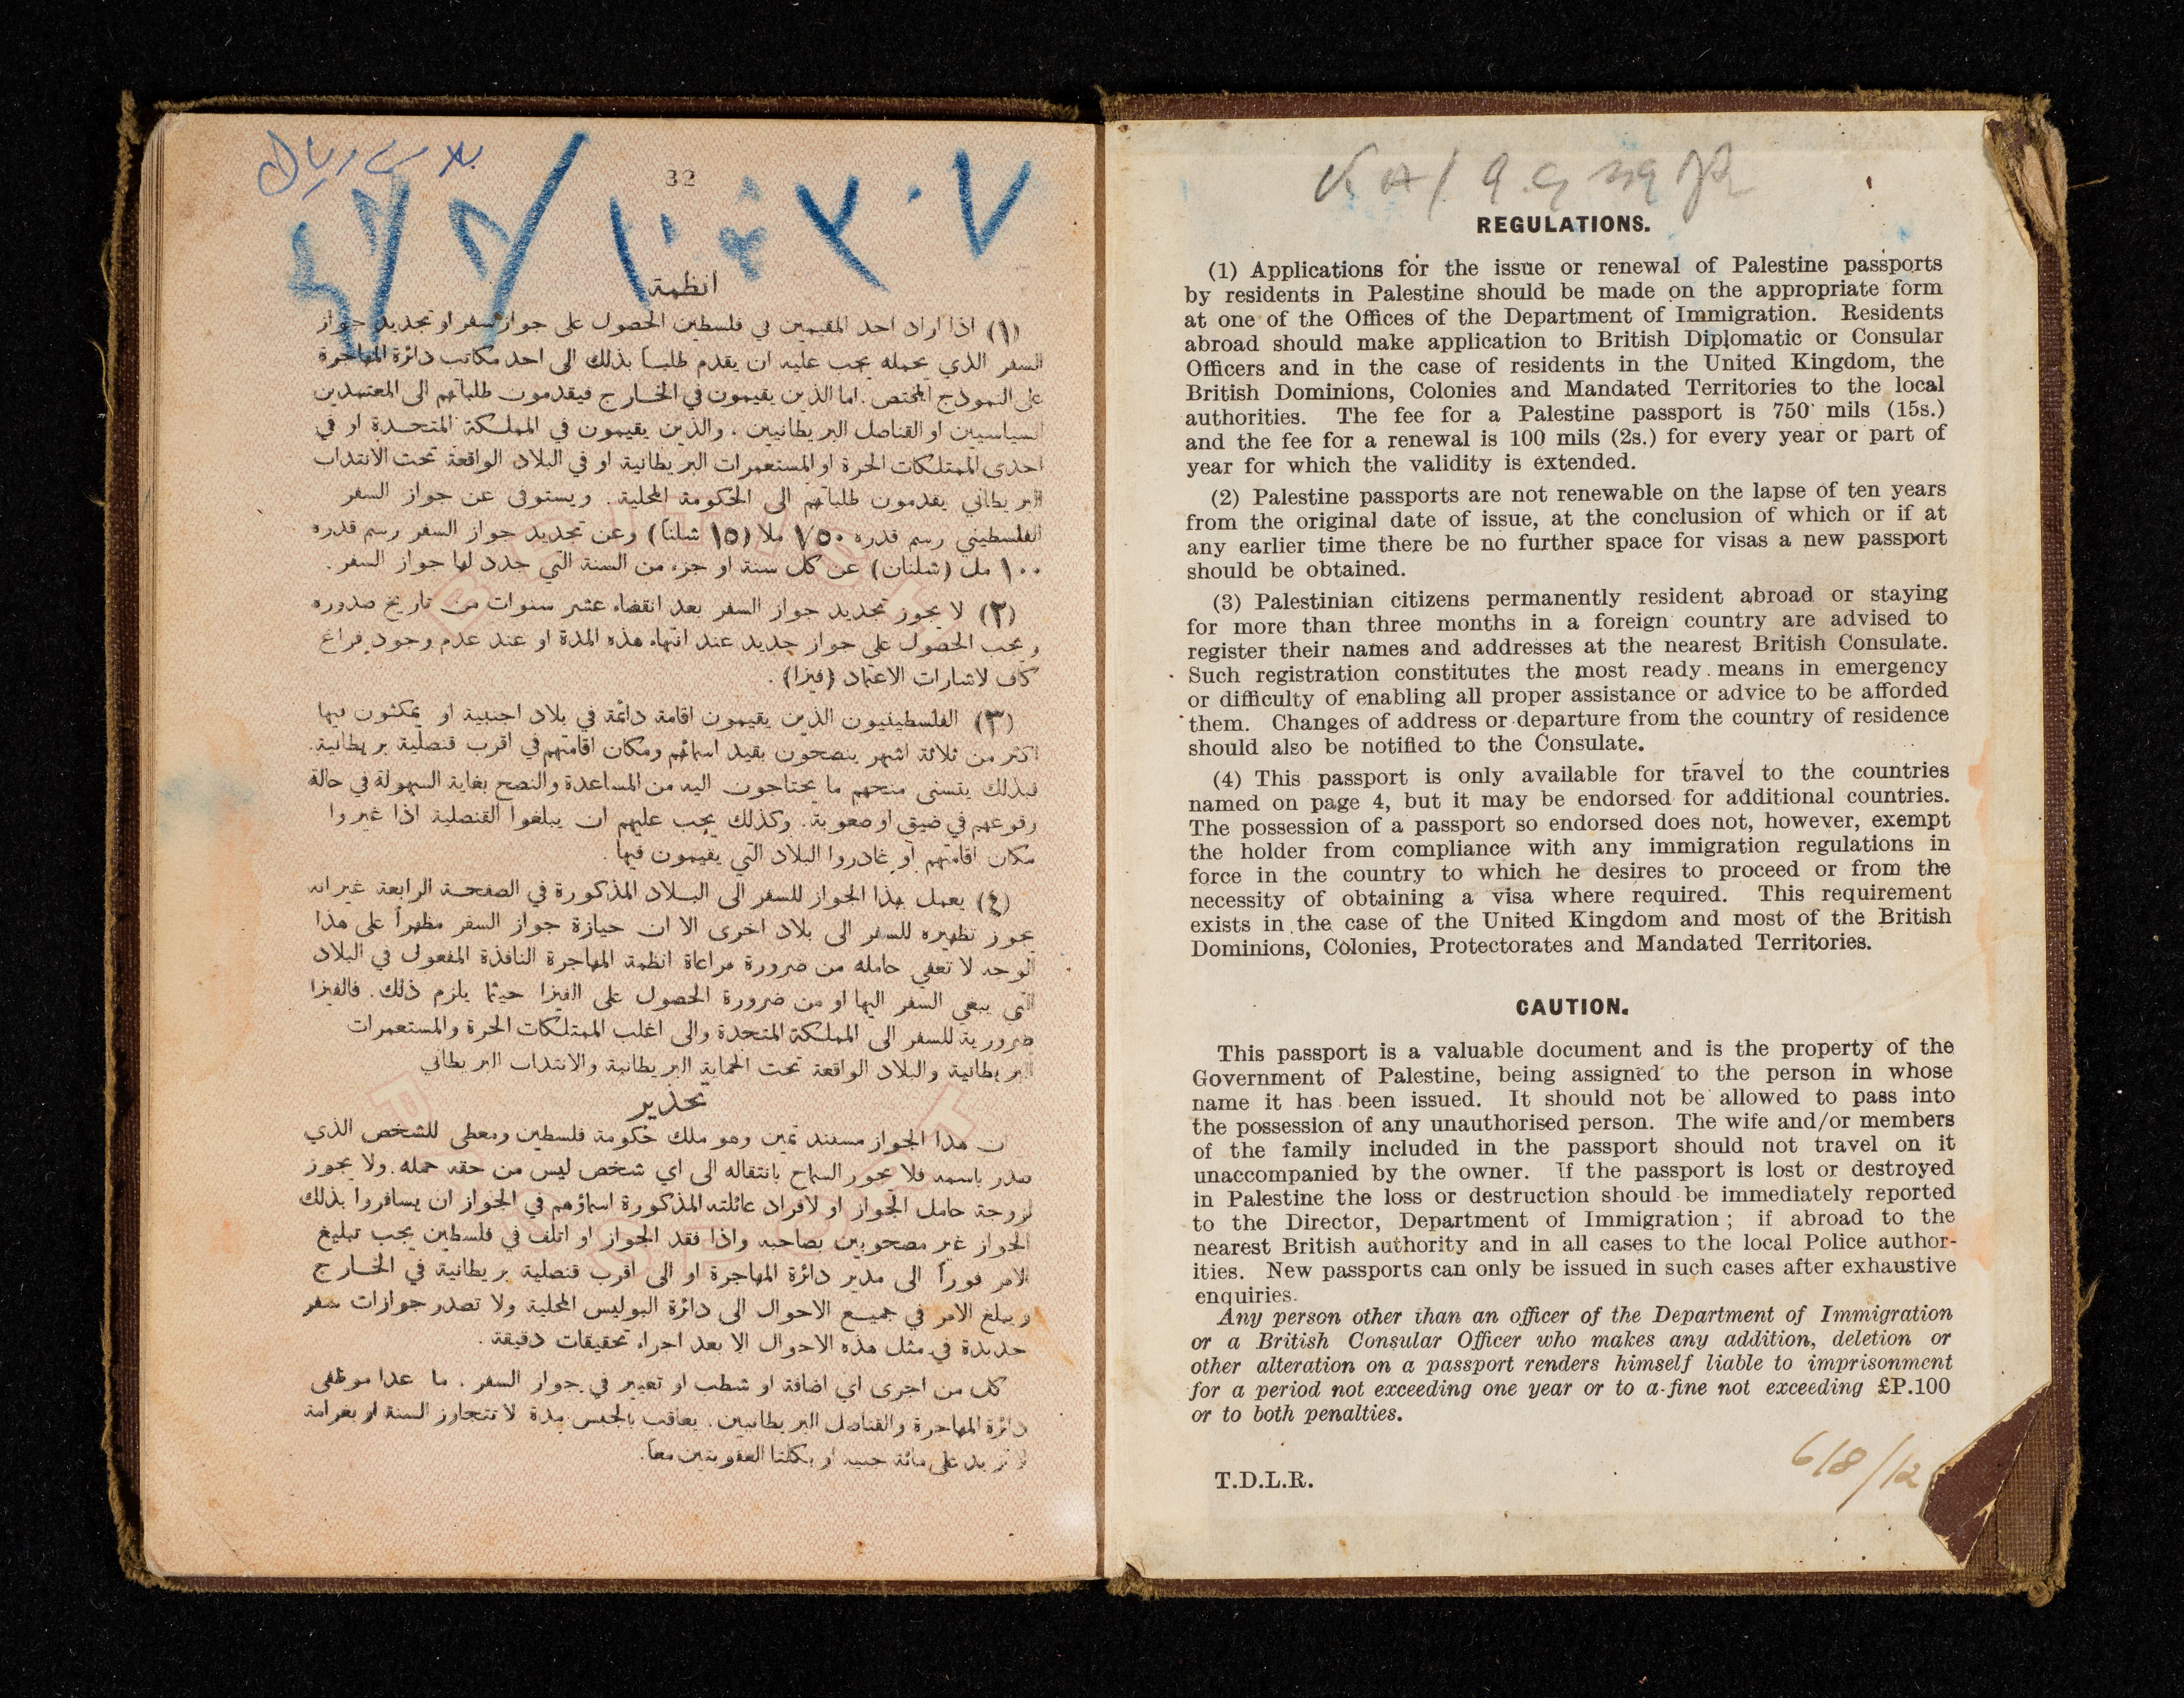 32
انظمة
(١) اذا اراد احد المقيمين في فلسطين الحصول على جواز سفر او تجديد جواز
السفر الذي يحمله يجب عليه ان يقدم طلبا بذلك الى احد مكاتب دائرة المهاجرة
على النموذج المختص. اما الذين يقيمون في الخارج فيقدمون طلباتهم الى المعتمدين
السياسيين او القناصل البريطانيين، والذين يقيمون في المملكة المتحدة او في
احدى الممتلكات الحرة او المستعمرات البريطانية او في البلاد الواقعة تحت الانتداب
البريطاني يقدمون طلباتهم الى الحكومة المحلية. ويستوفى عن جواز السفر
الفلسطيني رسم قدره ٧٥٠ ملا (١٥ شلناً) وعن تجديد جواز السفر رسم قدره
١٠٠ مل (شلنان) عن كل سنة او جزء من السنة التي جدد لها جواز السفر.
(٢) لا يجوز تجديد جواز السفر بعد انقضاء عشر سنوات من تاريخ صدوره
ويجب الحصول على جواز جديد عند انتهاء هذه المدة او عند عدم وجود فراغ
كاف لاشارات الاعتماد (فيزا).
(٣) الفلسطينيون الذين يقيمون اقامة دائمة في بلاد اجنبية او يمكثون فيها
اكثر من ثلاثة اشهر ينصحون بقيد اسمائهم ومكان اقامتهم في اقرب قنصلية بريطانية.
فبذلك يتسنى منحهم ما يحتاجون اليه من المساعدة والنصح بغاية السهولة في حالة
وقوعهم في ضيق او صعوبة. وكذلك يجب عليهم ان يبلغوا القنصلية اذا غيروا
مكان اقامتهم او غادروا البلاد التي يقيمون فيها.
(٤) يعمل بهذا الجواز للسفر الى البلاد المذكورة في الصفحة الرابعة غير انه
يجوز تظهيره للسفر الى بلاد اخرى الا ان حيازة جواز السفر مظهراً على هذا
الوجه لا تعفي حامله من ضرورة مراعاة انظمة المهاجرة النافذة المفعول في البلاد
التي يبغي السفر اليها او من ضرورة الحصول على الفيزا حيثما يلزم ذلك. فالفيزا
ضرورية للسفر الى المملكة المتحدة والى اغلب الممتلكات الحرة والمستعمرات
البريطانية والبلاد الواقعة تحت الحماية البريطانية والانتداب البريطاني
تحذير
ان هذا الجواز مستند ثمين وهو ملك حكومة فلسطين ومعطى للشخص الذي
صدر باسمه فلا يجوز السماح بانتقاله الى اي شخص ليس من حقه حمله. ولا يجوز
لزوجة حامل الجواز او لافراد عائلته المذكورة اسماؤهم في الجواز ان يسافروا بذلك
الجواز غير مصحوبين بصاحبه واذا فقد الجواز او اتلف في فلسطين يجب تبليغ
الامر فوراً الى مدير دائرة المهاجرة او الى اقرب قنصلية بريطانية في الخارج
ويبلغ الامر في جميع الاحوال الى دائرة البوليس المحلية ولا تصدر جوازات سفر
جديدة في مثل هذه الاحوال الا بعد اجراء تحقيقات دقيقة.
كل من اجرى اي اضافة او شطب او تغيير في جواز السفر، ما عدا موظفى
دائرة المهاجرة والقناصل البريطانيين، يعاقب بالحبس مدة لا تتجاوز السنة او بغرامة
لا تزيد على مائة جنيه او بكلتا العقوبتين معاً.
REGULATIONS.
(1) Applications for the issue or renewal of Palestine passports
by residents in Palestine should be made on the appropriate form
at one of the Offices of the Department of Immigration. Residents
abroad should make application to British Diplomatic or Consular
Officers and in the case of residents in the United Kingdom, the
British Dominions, Colonies and Mandated Territories to the local
authorities. The fee for a Palestine passport is 750 mils (15s.)
and the fee for a renewal is 100 mils (2s.) for every year or part of
year for which the validity is extended.
(2) Palestine passports are not renewable on the lapse of ten years
from the original date of issue, at the conclusion of which or if at
any earlier time there be no further space for visas a new passport
should be obtained.
(3) Palestinian citizens permanently resident abroad or staying
for more than three months in a foreign country are advised to
register their names and addresses at the nearest British Consulate.
Such registration constitutes the most ready means in emergency
or difficulty of enabling all proper assistance or advice to be afforded
them. Changes of address or departure from the country of residence
should also be notified to the Consulate.
(4) This passport is only available for travel to the countries
named on page 4, but it may be endorsed for additional countries.
The possession of a passport so endorsed does not, however, exempt
the holder from compliance with any immigration regulations in
force in the country to which he desires to proceed or from the
necessity of obtaining a visa where required. This requirement
exists in the case of the United Kingdom and most of the British
Dominions, Colonies, Protectorates and Mandated Territories.
CAUTION.
This passport is a valuable document and is the property of the
Government of Palestine, being assigned to the person in whose
name it has been issued. It should not be allowed to pass into
the possession of any unauthorised person. The wife and/or members
of the family included in the passport should not travel on it
unaccompanied by the owner. If the passport is lost or destroyed
in Palestine the loss or destruction should be immediately reported
to the Director, Department of Immigration; if abroad to the
nearest British authority and in all cases to the local Police author-
ities. New passports can only be issued in such cases after exhaustive
enquiries.
Any person other than an officer of the Department of Immigration
or a British Consular Officer who makes any addition, deletion or
other alteration on a passport renders himself liable to imprisonment
for a period not exceeding one year or to a fine not exceeding £P.100
or to both penalties.
618/12
T.D.L.R.